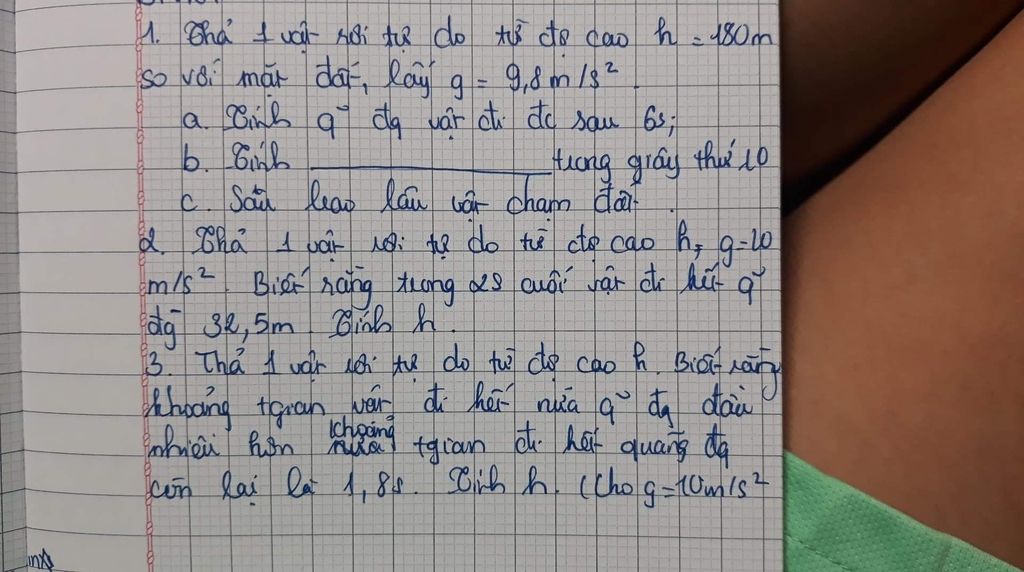 1. Thả 1 vật rơi tự do từ độ cao h = 180m
so với mặt đất, lấy g = 9,8m/s²
a. Tính q~ đg vật đi đc sau 6s;
b. Tính ________ trong giây thứ 10
c. Sau bao lâu vật chạm đất.
2. Thả 1 vật rơi tự do từ độ cao h, g=10
m/s². Biết rằng trong 2s cuối vật đi hết q~
đg 32,5m. Tính h.
3. Thả 1 vật rơi tự do từ độ cao h. Biết rằng
khoảng tgian vật đi hết nửa q~ đg đầu
nhiều hơn khoảng tgian đi hết quãng đg
còn lại là 1,8s. Tính h. (Cho g=10m/s²